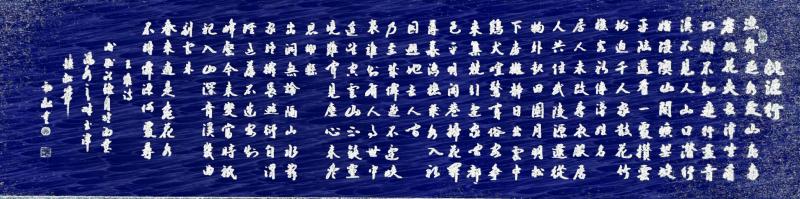 桃源行
漁舟逐水愛山春兩
岸桃花夾古津坐看
紅樹不知遠行盡青
溪不見人山口潛行
始隈隩山開曠望旋
平陸遙看一處攢雲
樹近入千家散花竹
樵客初傳漢姓名
居人未改秦衣服居
人共住武陵源還從
物外起田園月明松
下房櫳靜日出雲中
雞犬喧驚聞俗客爭
來集競引還家問都
邑平明閭巷掃花開
薄暮漁樵乘水入初
因避地去人間
及至成仙遂不還峽
裏誰知有人事世中
遙望空雲山不疑靈
境難聞見塵心未盡
思鄉縣
出洞無論隔山水辭
家終擬長遊衍自謂
經過舊不迷安知
峰壑今來變當時祇
記入山深青溪幾曲
到雲林
春來遍是桃花水
不辨仙源何處尋
王維詩